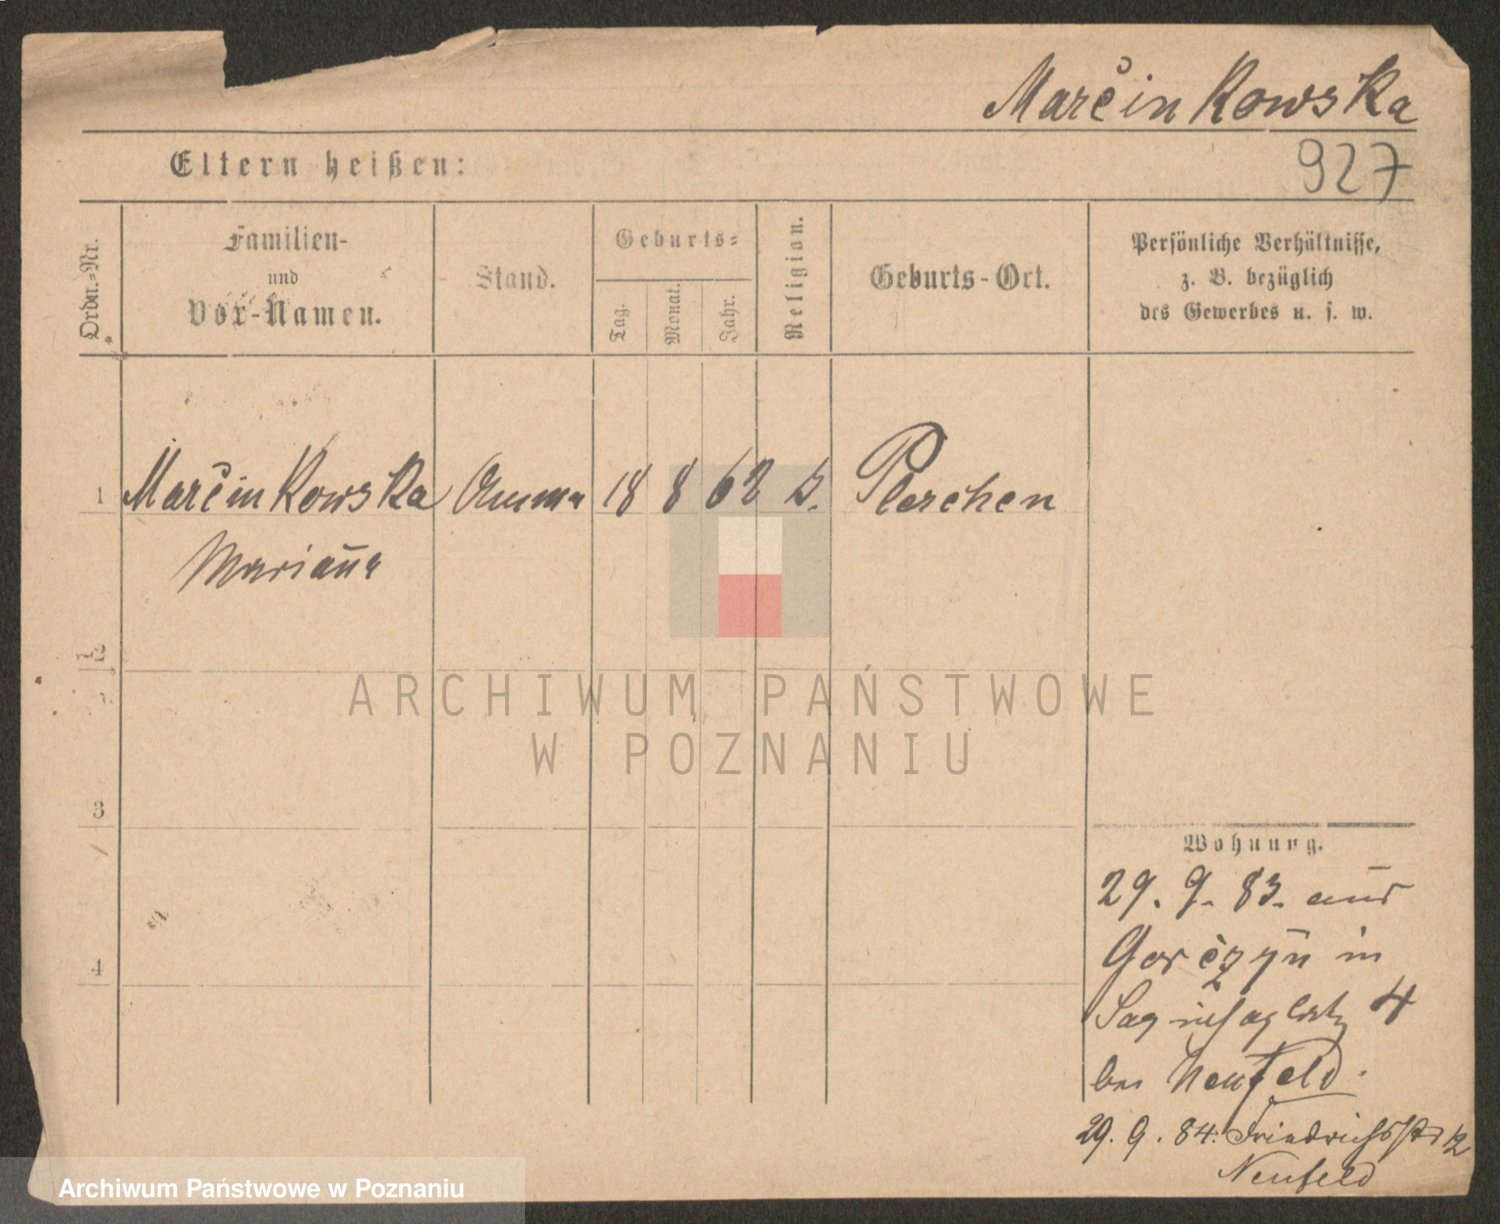 Marčinkowska
927
Eltern heißen:
Ordn.-Nr.
Familien-
und
Vor-Namen.
Stand.
Geburts-
Tag.
Monat.
Jahr.
Religion.
Geburts-Ort.
Persönliche Verhältnisse,
z. B. bezüglich
des Gewerbes u. s. w.
1 Marčinkowska Amme 18 8 62 Pleschen
Marianna
2
3
4
Wohnung.
29. 9. 83. aus
Gorčzyn in
4
bei Neufeld.
29. 9. 84. Friedrichsstr 12
Neufeld
ARCHIWUM PAŃSTWOWE
W POZNANIU
Archiwum Państwowe w Poznaniu